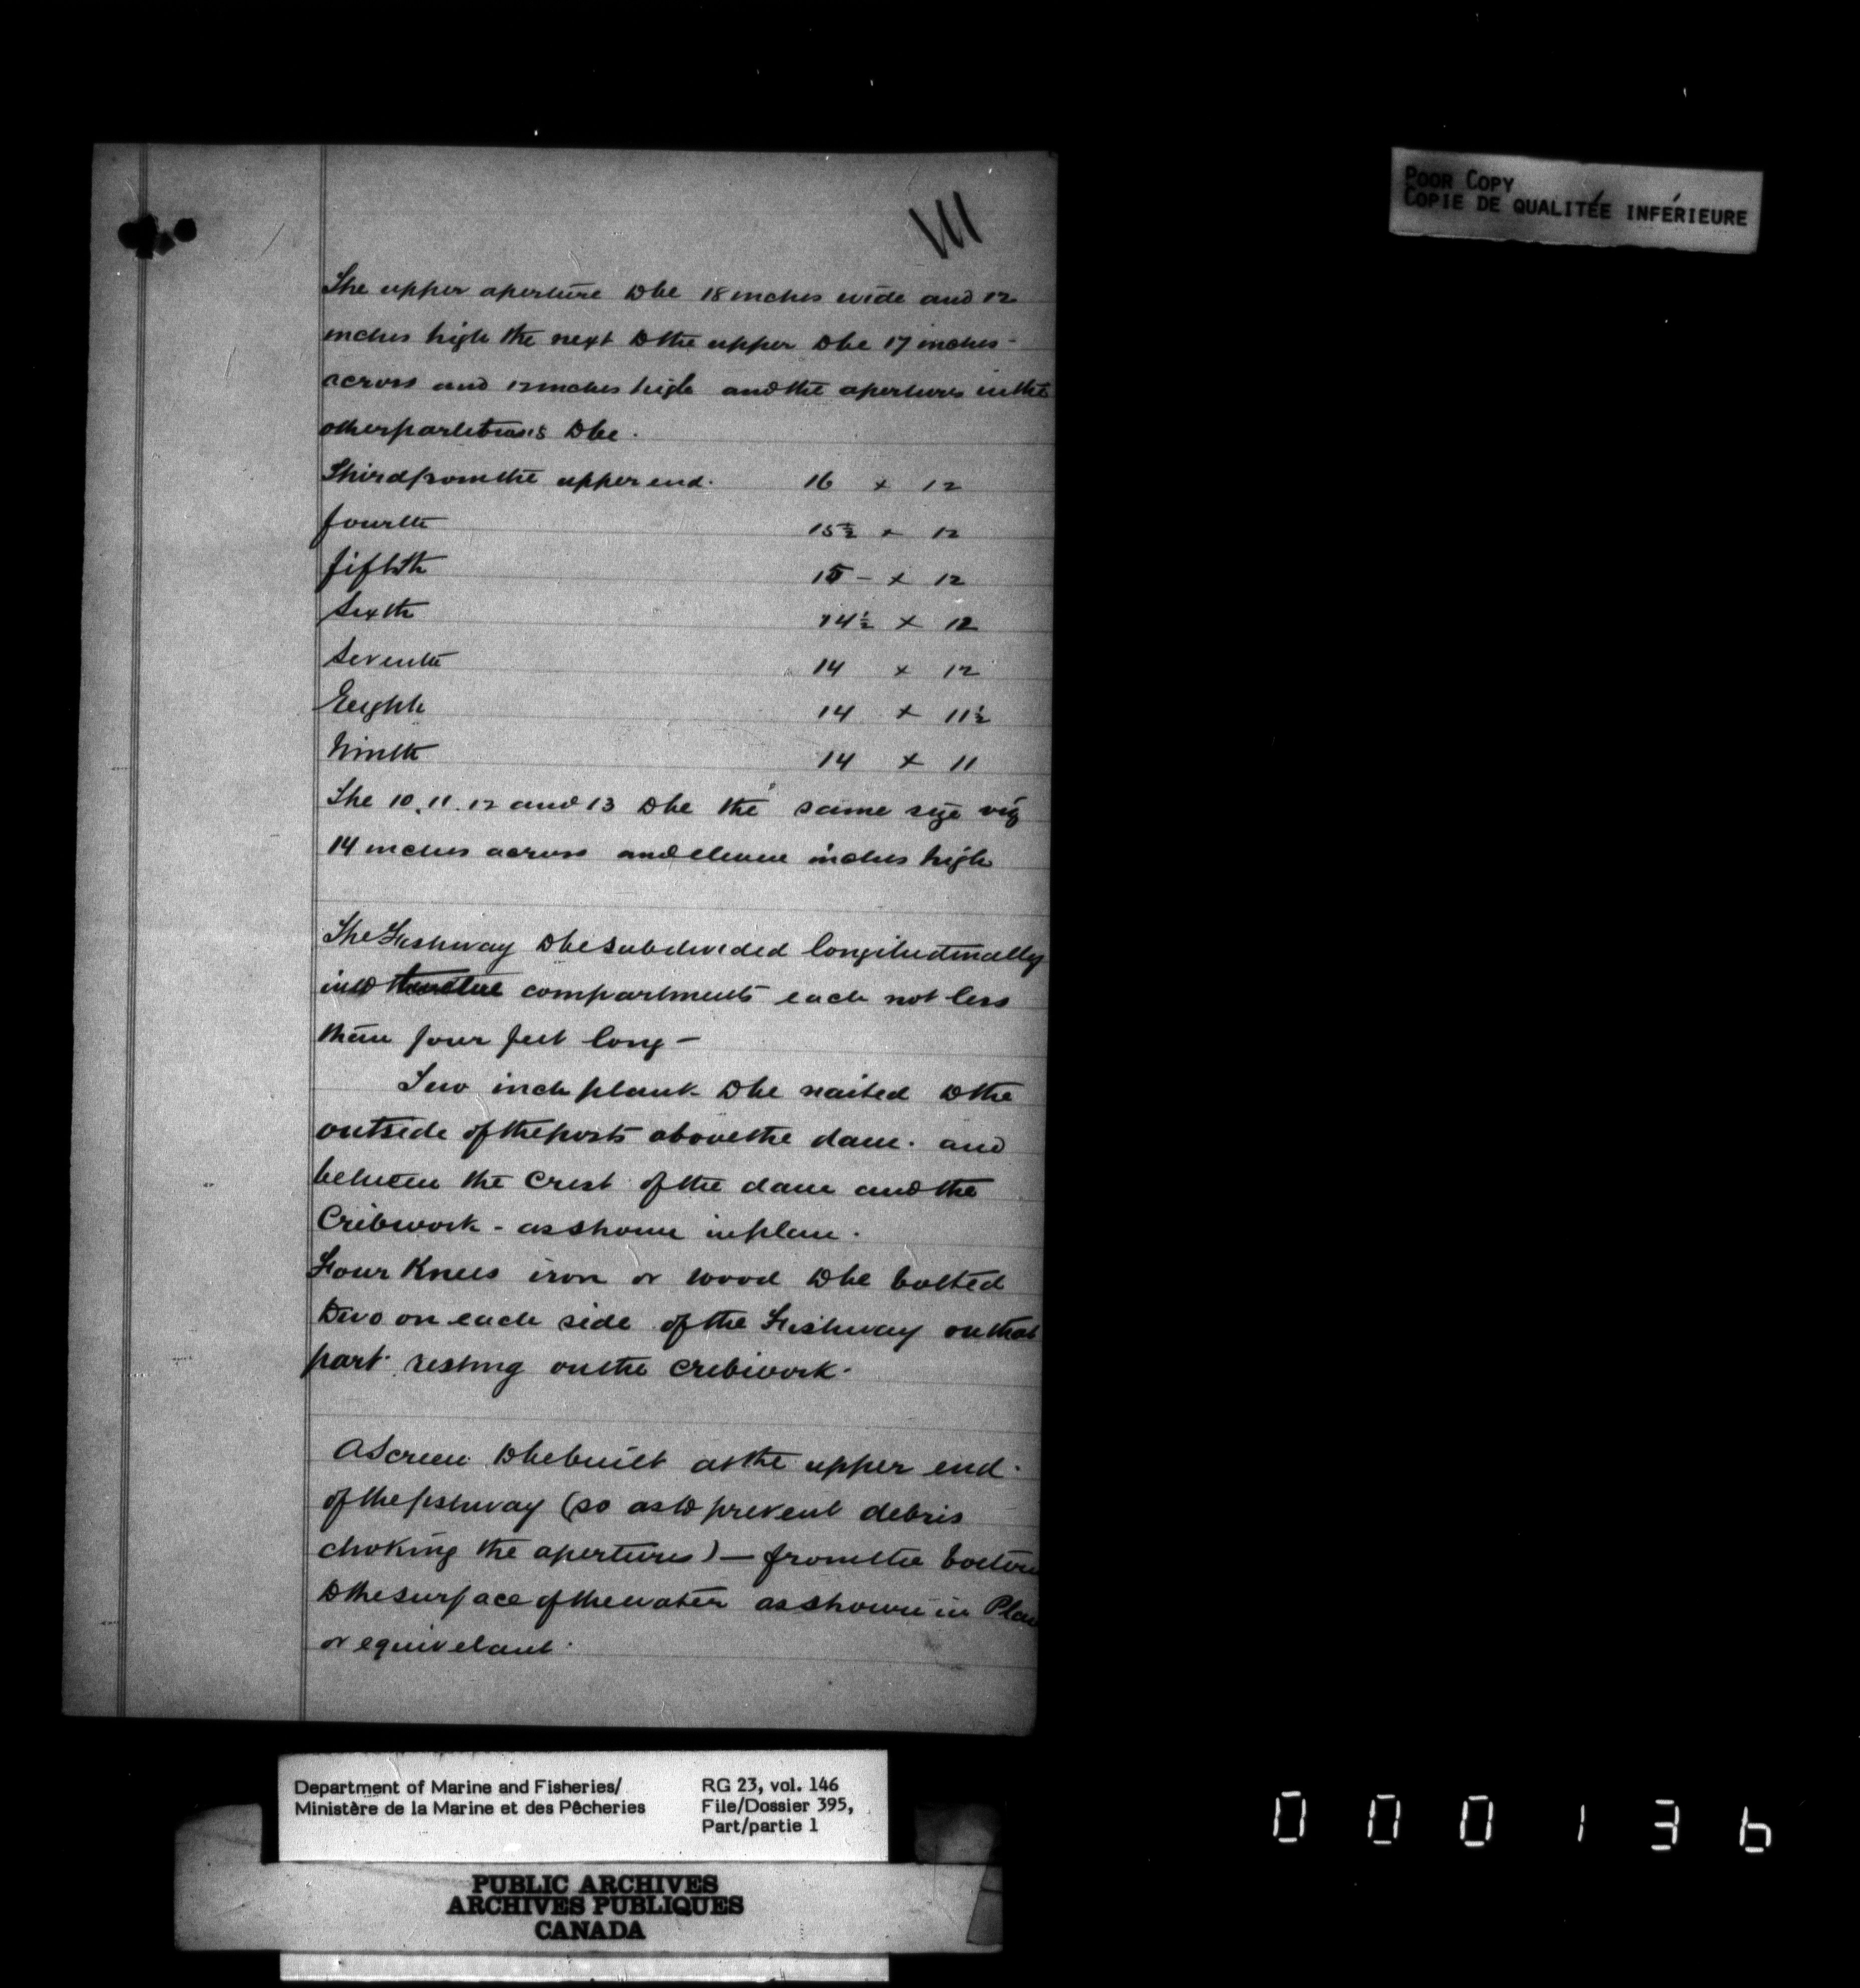 POOR COPY
COPIE DE QUALITÉE INFÉRIEURE
The upper aperture to be 18 inches wide and 12
inches high the next to the upper to be 17 inches -
across and 12 inches high and the apertures in the
other partitions to be.
Third from the upper end. 16 x 12
fourth 15½ x 12
fifth 15 - x 12
Sixth 14½ x 12
Seventh 14 x 12
Eeighth 14 x 11½
Ninth 14 x 11
The 10, 11. 12 and 13 to be the same size viz
14 inches across and eleven inches high
The Fishway to be subdivided longitudinally
into compartments each not less
than four feet long -
Two inch plank to be nailed to the
outside of the posts above the dam. and
between the Crest of the dam and the
Cribwork - as shown in plan.
Four Knees iron or wood to be bolted
two on each side of the Fishway on that
part resting on the cribwork.
A Screen to be built at the upper end.
of the fishway (so as to prevent debris
choking the apertures) - from the bottom
to the surface of the water as shown in Plan
or equivelant.
Department of Marine and Fisheries/
Ministère de la Marine et des Pêcheries
RG 23, vol. 146
File/Dossier 395,
Part/partie 1
PUBLIC ARCHIVES
ARCHIVES PUBLIQUES
CANADA
000136